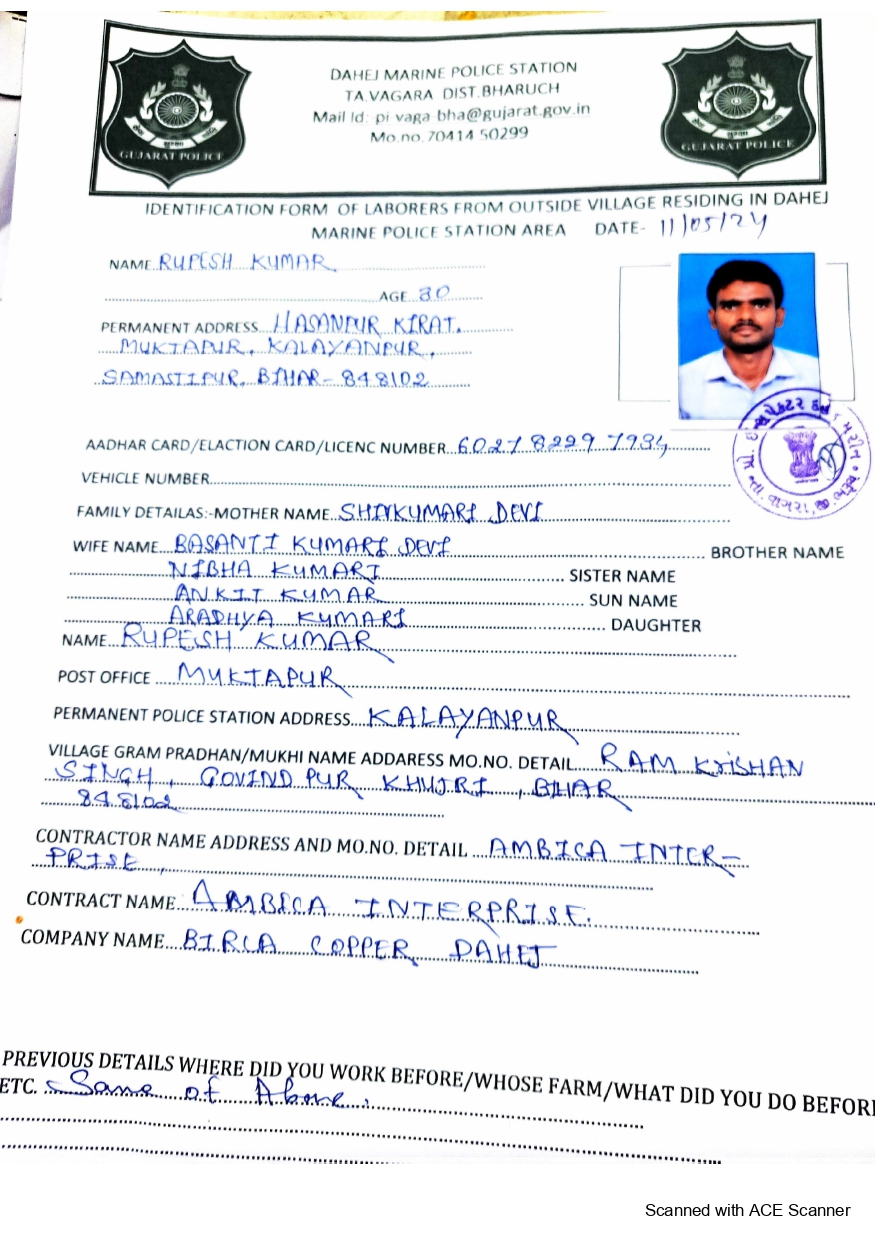 DAHEJ MARINE POLICE STATION
TA.VAGARA DIST.BHARUCH
Mail Id: pi vaga-bha@gujarat.gov.in
Mo.no.70414 50299
GUJARAT POLICE
GUJARAT POLICE
IDENTIFICATION FORM OF LABORERS FROM OUTSIDE VILLAGE RESIDING IN DAHEJ
MARINE POLICE STATION AREA DATE- 11/05/24
NAME RUPESH KUMAR
AGE 30
PERMANENT ADDRESS HASANPUR KIRAT.
MUKTAPUR, KALAYANPUR,
SAMASTIPUR, BIHAR - 848102
AADHAR CARD/ELACTION CARD/LICENC NUMBER 6027 8299 7934
VEHICLE NUMBER
FAMILY DETAILAS:-MOTHER NAME SHIVKUMARI DEVI
WIFE NAME BASANTI KUMARI DEVI BROTHER NAME
NIBHA KUMARI SISTER NAME
ANKIT KUMAR SUN NAME
ARADHYA KUMARI DAUGHTER
NAME RUPESH KUMAR
POST OFFICE MUKTAPUR
PERMANENT POLICE STATION ADDRESS KALAYANPUR
VILLAGE GRAM PRADHAN/MUKHI NAME ADDARESS MO.NO. DETAIL RAM KRISHAN
SINGH, GOVIND PUR KHUJRI, BIHAR
848102
CONTRACTOR NAME ADDRESS AND MO.NO. DETAIL AMBICA INTER-
PRISE,
CONTRACT NAME AMBICA INTERPRISE.
COMPANY NAME BIRLA COPPER DAHEJ
PREVIOUS DETAILS WHERE DID YOU WORK BEFORE/WHOSE FARM/WHAT DID YOU DO BEFORE
ETC. Same of Above.
Scanned with ACE Scanner